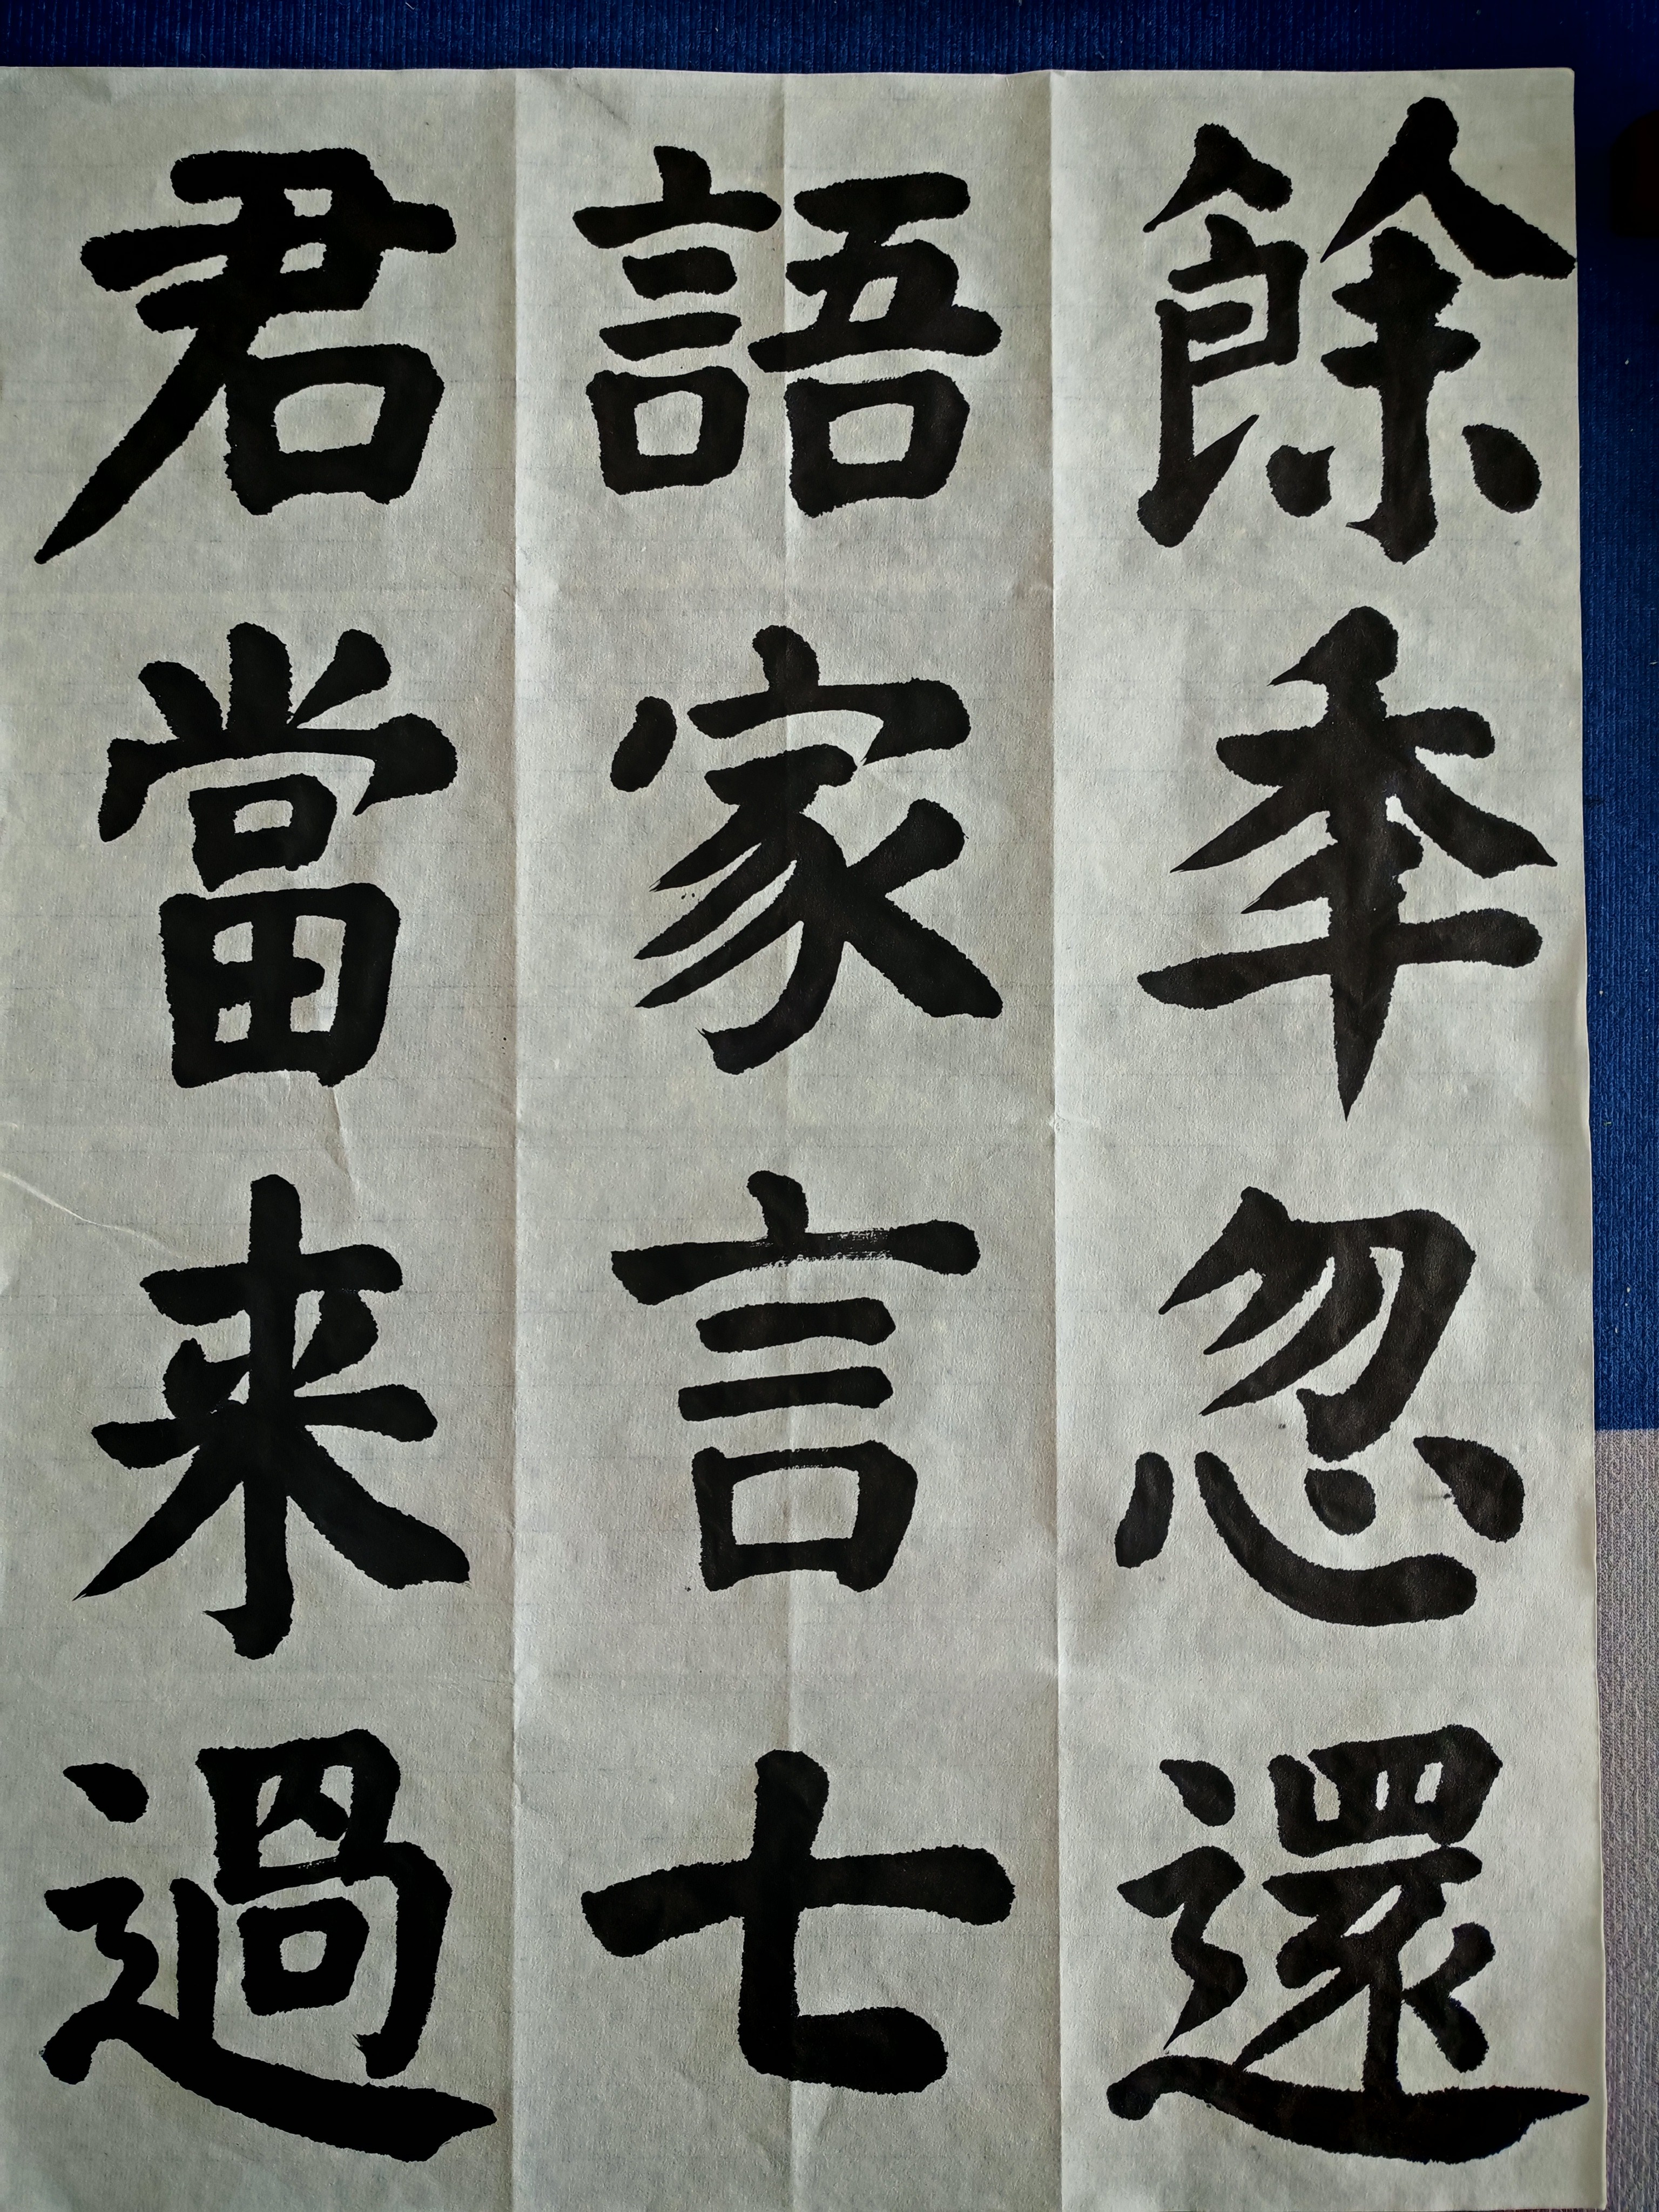 餘秊忽還
語家言七
君當来過